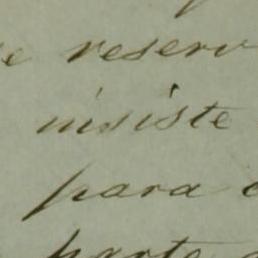 e reserv
insiste
para c
parte